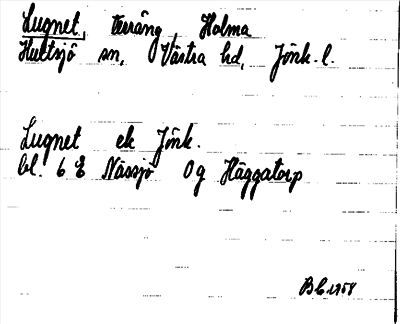 Lugnet, terräng, Holma
Hultsjö sn, Västra hd, Jönk. l.
Lugnet ek Jönk.
bl. 6 E Nässjö Og Häggatorp
BE 1958